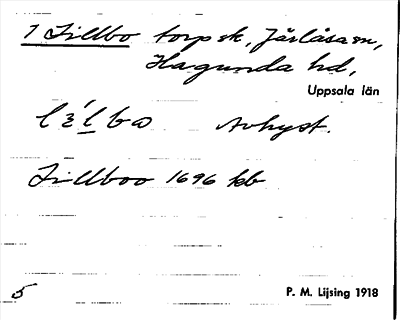 1 Lillbo torp sk, Järlåsa sn,
Hagunda hd,
Uppsala län
Avhyst.
Lillboo 1696 kb
5
P. M. Lijsing 1918